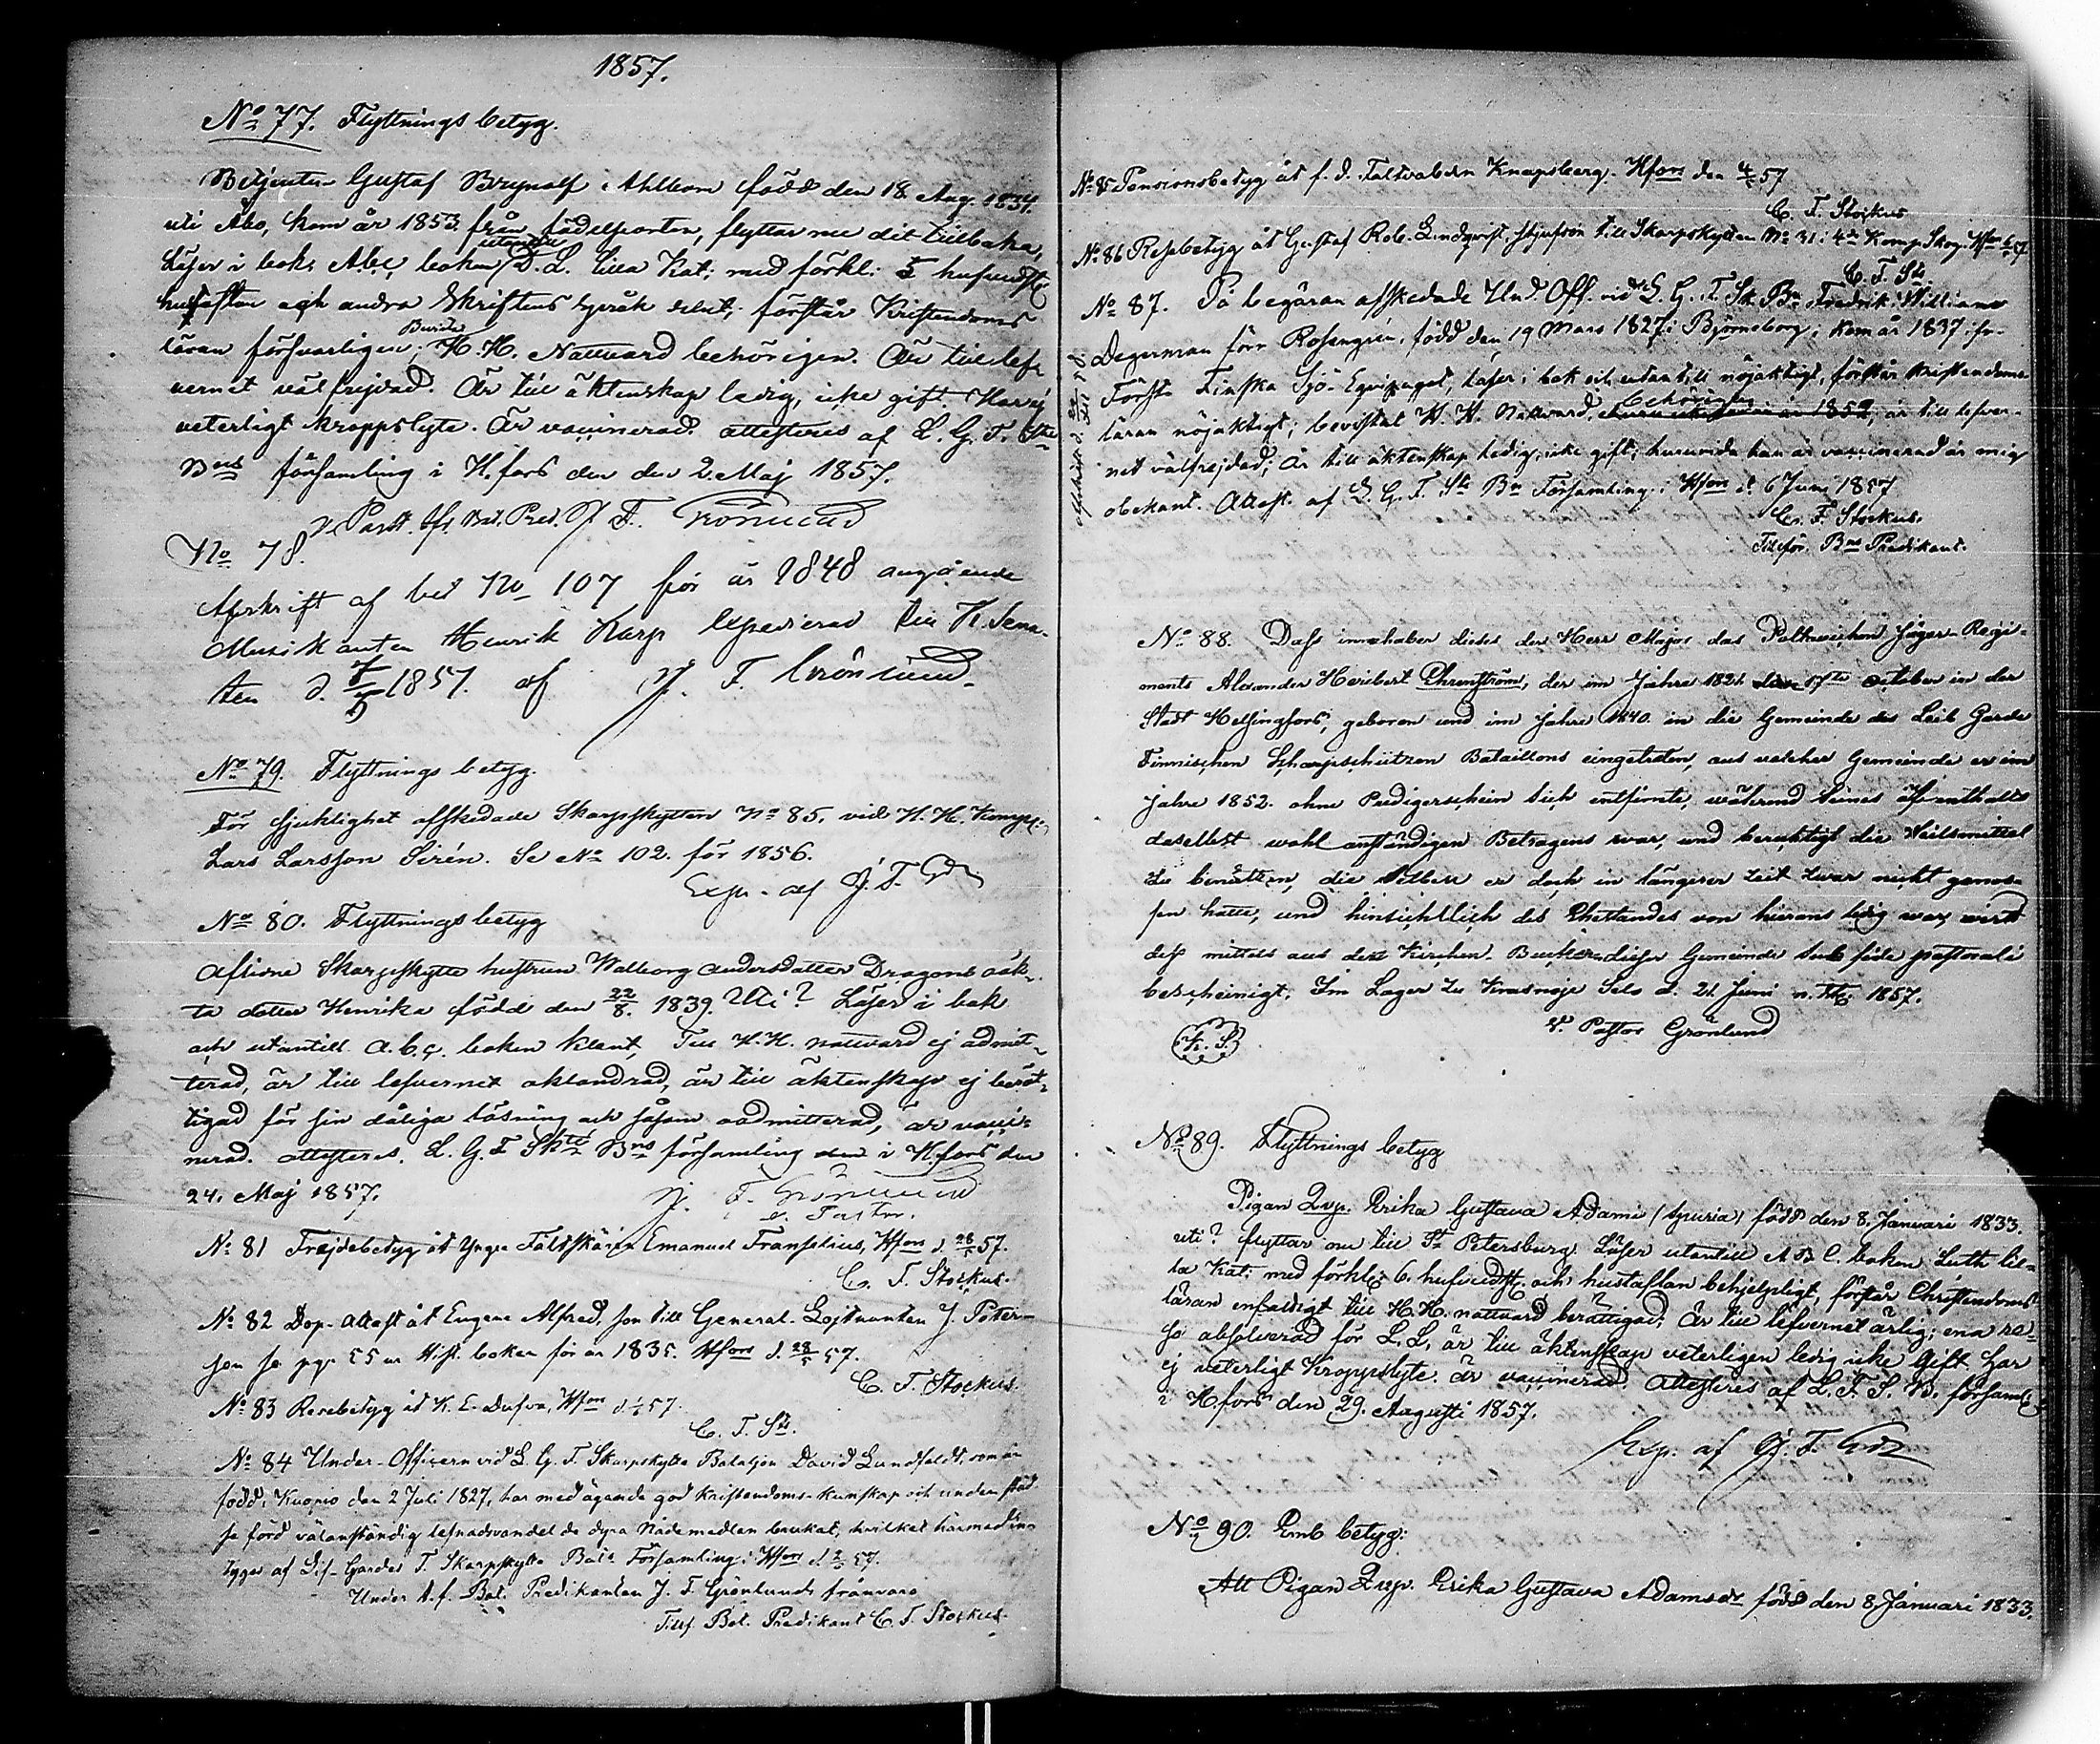 1857.
No 77. Flyttnings betyg.
Betjenten Gustaf Brynolf Ahlbom född den 18. Aug. 1834.
uti Åbo, kom år 1853. från födelseorten, flyttar nu dit tillbaka,
Läser i bok: Abc boken utantill D. L. lilla Kat: med förkl: 5 hufvudst.
hustaflan och andra Skriftens språk slut, förstår Kristendoms
läran försvarligen; Bevistar H. H. Nattvard behörigen. Är till lef-
vernet välfrejdad. Är till äktenskap ledig, icke gift. Har ej
veterligt kroppslyte. Är vaccinerad. attesteras af L. G. F. Ske
Bns församling i H.fors den 2. Maj 1857.
J. F. Grönlund
No 78.
Afskrift af bet No 107 för år 1848 angående
Musikanten Henrik Karp expedierad till K. Sena-
ten d. 7/5 1857. af J. F. Grönlund.
No 79. Flyttnings betyg.
För sjuklighet afskedade Skarpskytten No 85. vid H. K. Komp:
Lars Larsson Sirén. Se No 102. för 1856.
Exp. af J. F. Gd
No 80. Flyttnings betyg
Aflidne Skarpskytte hustrun Walborg Andersdotter Dragons oäk-
ta dotter Henrika född den 22/8. 1839. Uti? Läser i bok
och utantill a.b.c. boken klent, Till H. H. nattvard ej admit-
terad, är till lefvernet oklandrad, är till äktenskap ej berät-
tigad för sin dåliga läsning och såsom oadmitterad, är vacci-
nerad. attesteras. L. G. F Skte Bns församling i H.fors den
24. Maj 1857.
J. F. Grönlund
v. Pastor.
No 81 Frejdebetyg åt Yngre Fältskären Emanuel Franselius, Hfors d. 28/5 57.
C. F. Stockus.
No 82 Dop-attest åt Eugene Alfred, son till General-Löjtnanten J. Peter-
sen se pag. 55 ur Hist. boken för år 1835. Hfors d. 28/5 57.
C. F. Stockus.
No 83 Resebetyg åt K. E. Dufva, Hfors d. 57.
C. F. Sts.
No 84 Under-Officern vid L. G. F. Skarpskytte Bataljon David Lundfeldt, som är
född i Kuopio den 2 Juli 1827, har med ägande god Kristendoms-kunskap och under städ-
se förd välanständig lefnadsvandel de dyra Nådemedlen brukat, hvilket härmed be-
tygas af Lif-Gardes F. Skarpskytte Bats Församling i Hfors d. 57.
Under Bat. Predikanten J. F. Grönlunds frånvaro
Tillf. Bat. Predikant C. F. Stockus.
No 85 Pensionsbetyg åt f. d. Fältväbeln Knapsberg. Hfors den 4/6 57
C. F. Stockus
No 86 Resebetyg åt Gustaf Rob. Lindqvist, styfson till Skarpskytten No 31 i 4de Komp. Skog. Hfors 57
C. F. Sts
No 87. På begäran afskedade Und. Off. vid L. G. F. Sk. Bn Fredrik William
Degerman förr Rosengren, född den 19 Mars 1827 i Björneborg; kom år 1837 fr.
Första Finska Sjö-Equipaget, läser i bok och utantill nöjaktigt, förstår kristendoms-
läran nöjaktigt; bevistat H. H. Nattvard, behörigen 1852, är till lefver-
net välfrejdad; är till äktenskap ledig, icke gift; huruvida han är vaccinerad är mig
obekant. Attest. af L. G. F. Sts Bn Församling i Hfors d. 6 Juni 1857
C. F. Stockus.
Tillför. Bns Predikant.
No 88. Dass inhaber dieses der Herr Major das Jäger-Regi-
ments Alexander Heribert Ehrenström, der im Jahre 1821 17te october in der
Stadt Helsingfors, geboren und im Jahre 1840. in die Gemeinde des Leib Garde
Finnischen Scharpschützen Bataillons eingetreten, aus welcher Gemeinde er im
Jahre 1852. ohne Predigerschein sich entfernte, während seines Aufenthalts
daselbst wohl anständigen Betragens war, und berechtigt die Heilsmittel
zu benutzen, die selben er doch in längerer Zeit zwar nicht genos-
sen hatte, und hinsichtlich des Ehestandes von hieraus ledig war, wird
dess mittels aus dem Kirchen-Buche dieser Gemeinde sub fide pastorali
bescheinigt. Im Lager zu Krasnoje Selo d. 21 Juni n. St. 1857.
v. Pastor Grönlund
K. S.
No 89. Flyttnings betyg
Pigan Qvp. Erika Gustava Adami (spuria) född den 8. Januari 1833.
uti? flyttar nu till St Petersburg. Läser utantill A B C. boken Luth: lil-
la Kat: med förkl: 6. hufvudst. och hustaflan behjelpligt, förstår Christendoms
läran enfaldigt till H. H. nattvard berättigad; Är till lefvernet ärlig; ena re-
so absolverad för L. S. är till äktenskap veterligen ledig icke Gift. har
ej veterligt Kroppslyte. är vaccinerad. Attesteras af L. F. S. B. församl.
i H.fors den 29. Augusti 1857.
Exp. af J. F. Gd
No 90. Emb. betyg:
Att Pigan Qvp. Erika Gustava Adamsdr född den 8. Januari 1833.